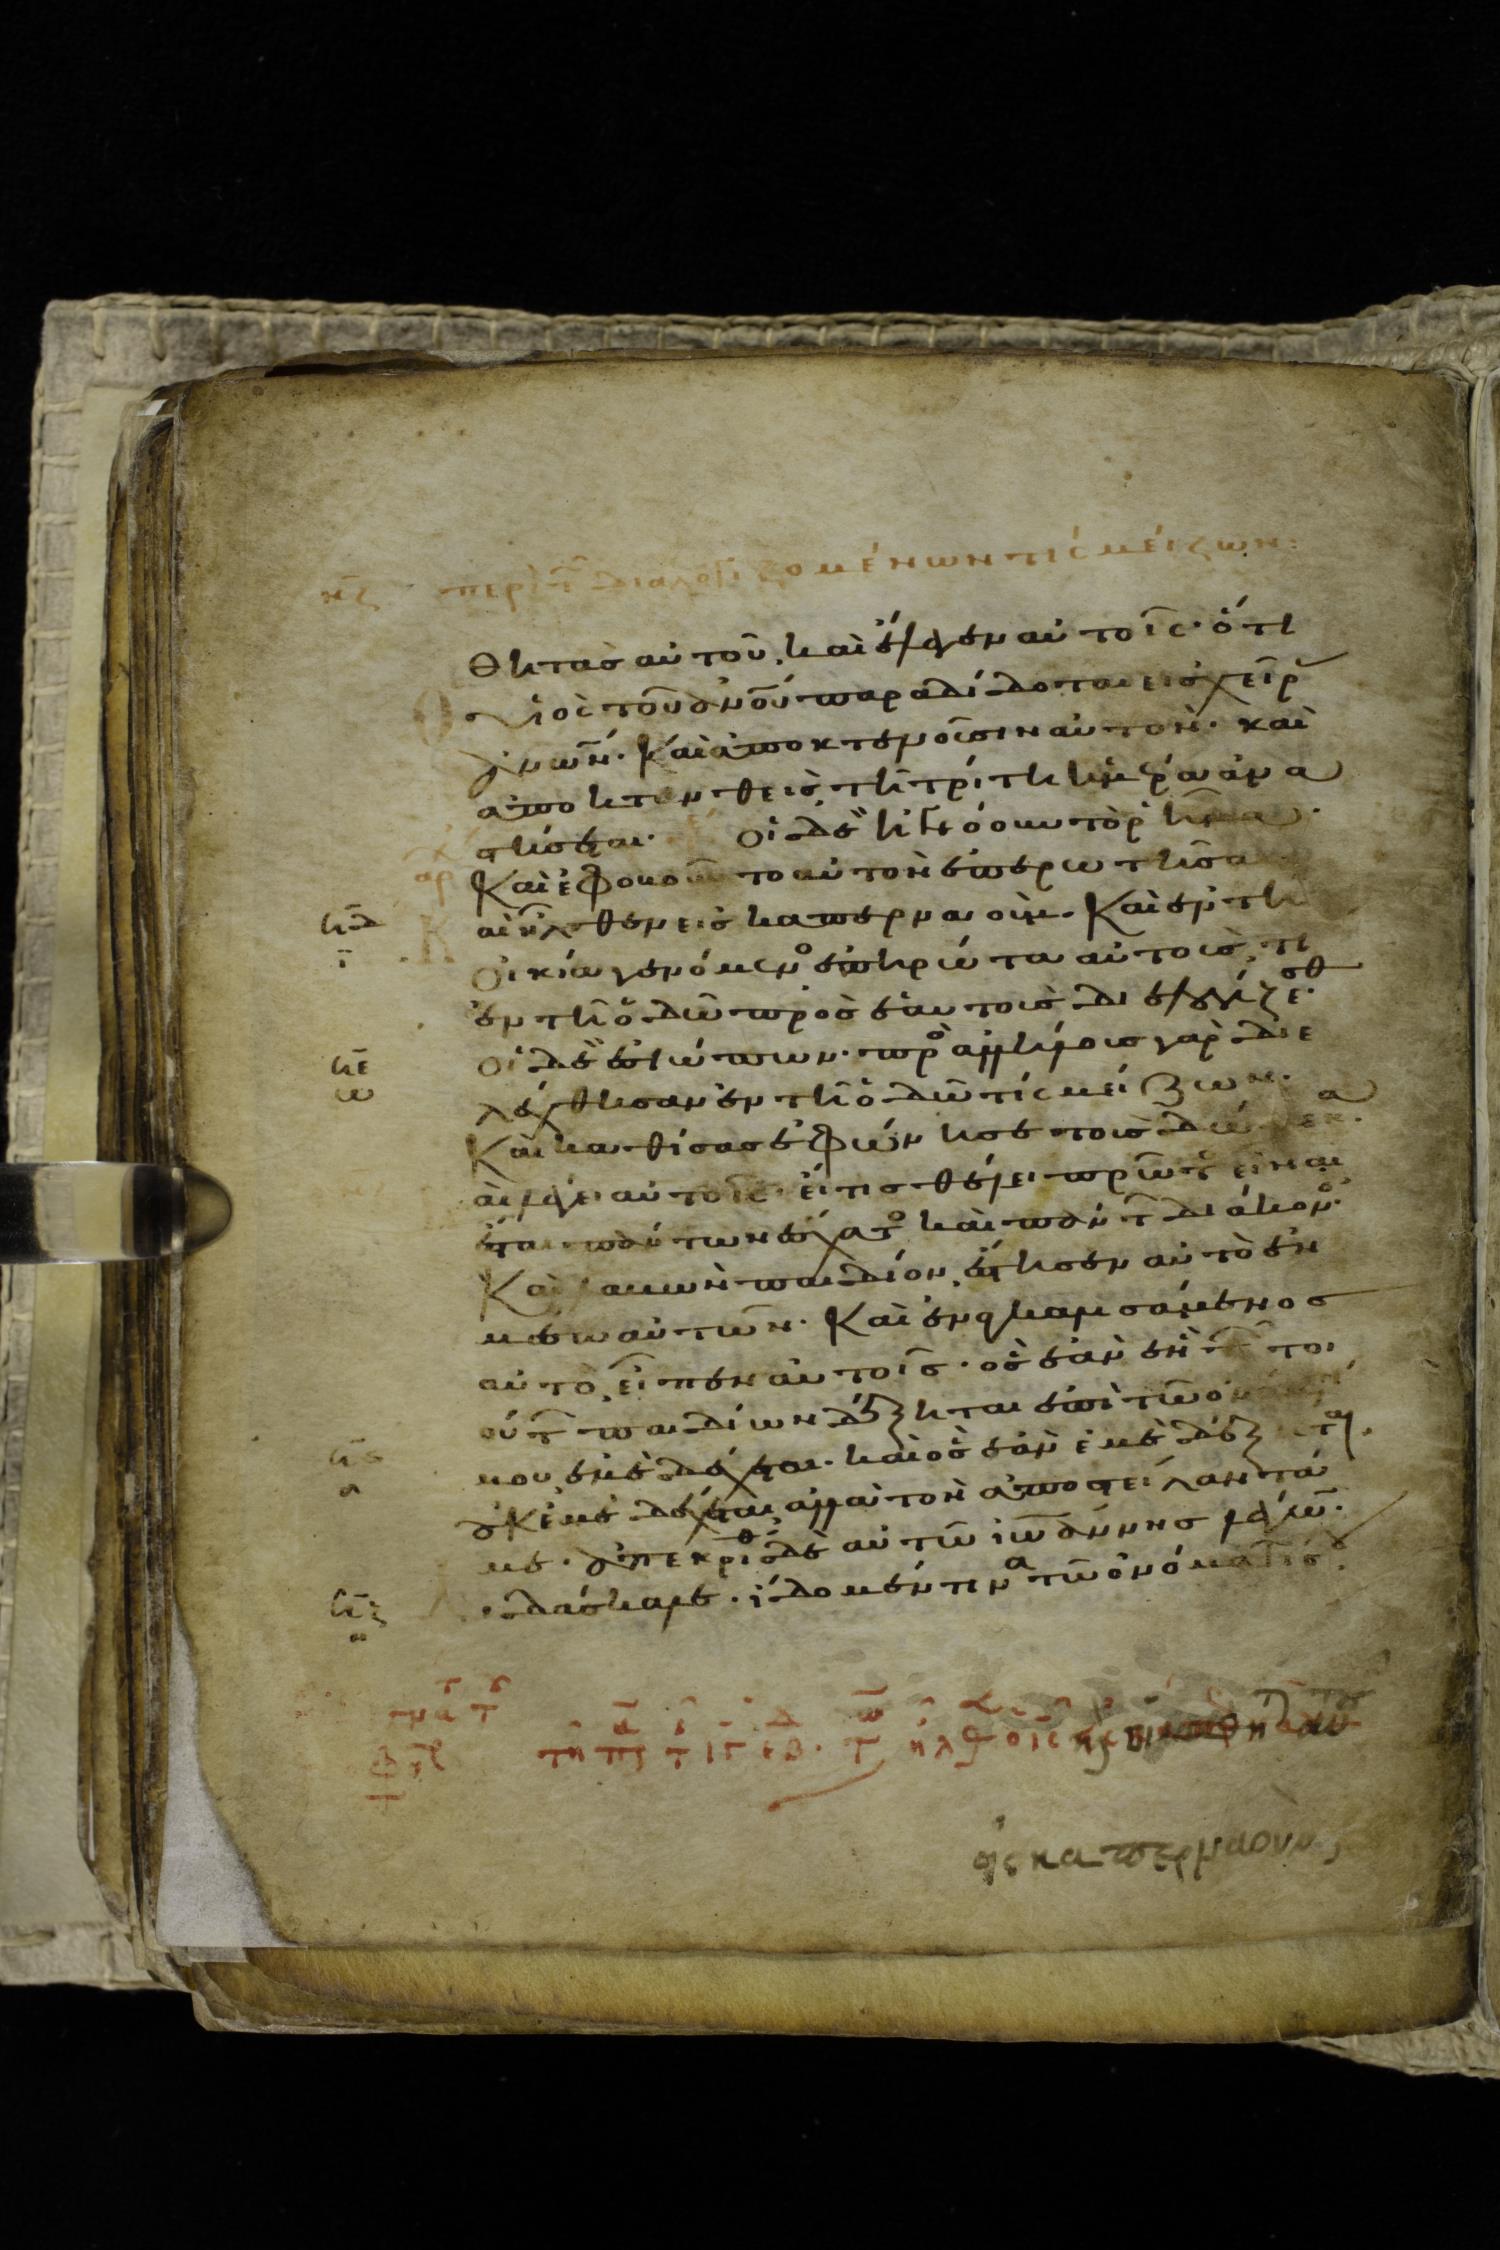 περὶ τ̑ διαλογιζομένων τίς μείζων:
θητὰς αὐτοῦ, καὶ ἔλεγεν αὐτοῖς· ὅτι
υἱὸς τοῦ ἀνοῦ παραδίδοται εἰς χεῖρ
ἀνων· Καὶ ἀποκτενοῦσιν αὐτόν· καὶ
ἀποκτανθεὶς τῆ τρίτη ἡμέρα ἀνα
στήσεται· Οἱ δὲ ἠγνόουν τὸ ῥῆμα·
Καὶ ἐφοβοῦντο αὐτὸν ἐπερωτῆσαι
αὶ ἦλθεν εἰς καπερναούμ· Καὶ ἐν τῆ
οἰκία γενόμενο ἐπηρώτα αὐτούς, τί
ἐν τῆ ὁδῶ πρὸς ἑαυτοὺς διελογίζεσθ
οἱ δὲ ἐσιώπων· πρὸ ἀλλήλους γὰρ διε
λέχθησαν ἐν τῆ ὁδῶ τίς μείζων·
Καὶ καθίσας ἐφώνησε τοὺς δώδεκα·
αὶ λέγει αὐτοῖς· εἴ τις θέλει πρῶτο εἶναι
ἔσται πάντων ἔσχατο καὶ πάντ διάκον·
Καὶ λαβὼν παιδίον, ἔστησεν αὐτὸ ἐν
μέσω αὐτῶν· Καὶ ἐναγκαλισάμενος
αὐτό, εἶπεν αὐτοῖς· ὃς ἐὰν ἓν τ̑ τοι
ούτ παιδίων δέξηται ἐπὶ τῶ ὀνόματί
μου, ἐμὲ δέχεται· καὶ ὃς ἐὰν ἐμὲ δέξηται,
οὐκ ἐμὲ δέχεται, ἀλλὰ τὸν ἀποστείλαντά
με· ἀπεκρίθ δὲ αὐτῶ ἰωάννης λέγων·
διδάσκαλε· εἴδομέν τινα τῶ ὀνόματί σου